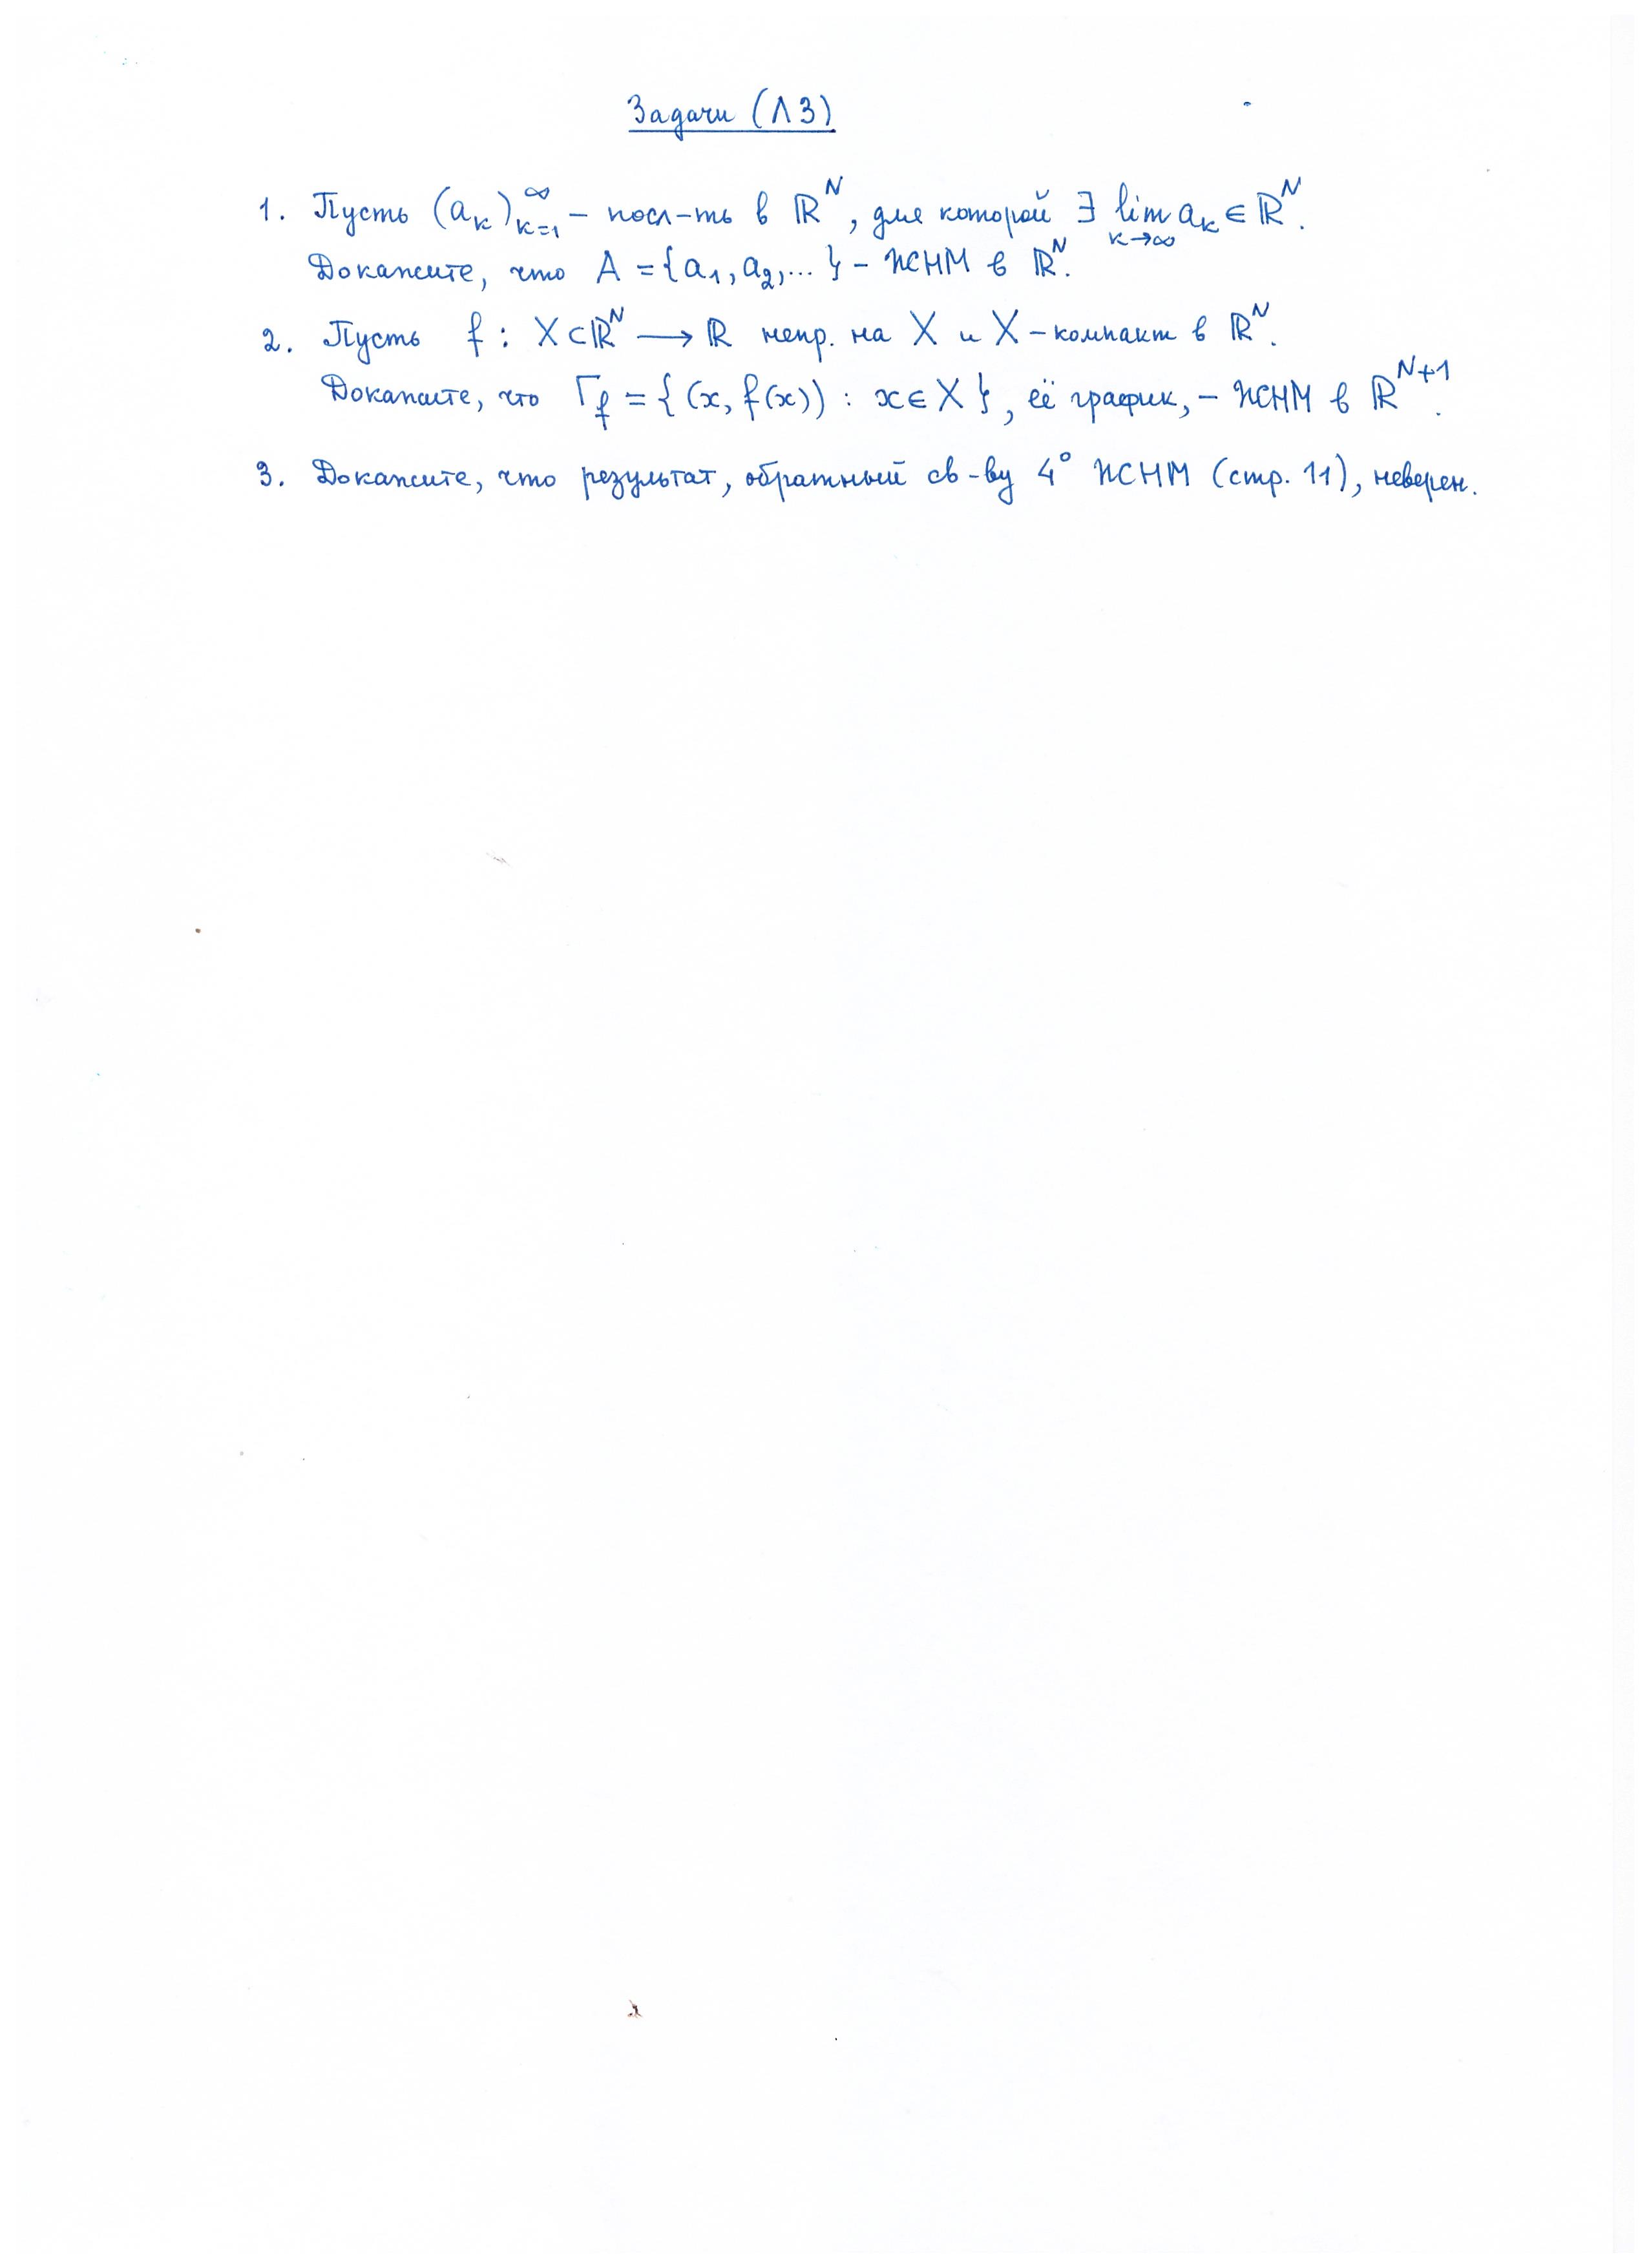 Задачи (Л3)
1. Пусть (aₖ)ₖ₌₁^∞ – посл-ть в ℝᴺ, для которой ∃ lim_{k→∞} aₖ ∈ ℝᴺ.
Докажите, что A = {a₁, a₂, ...} – ЖСНМ в ℝᴺ.
2. Пусть f : X ⊂ ℝᴺ ⟶ ℝ непр. на X и X – компакт в ℝᴺ.
Докажите, что Γ_f = {(x, f(x)) : x ∈ X}, её график, – ЖСНМ в ℝᴺ⁺¹.
3. Докажите, что результат, обратный св-ву 4° ЖСНМ (стр. 11), неверен.